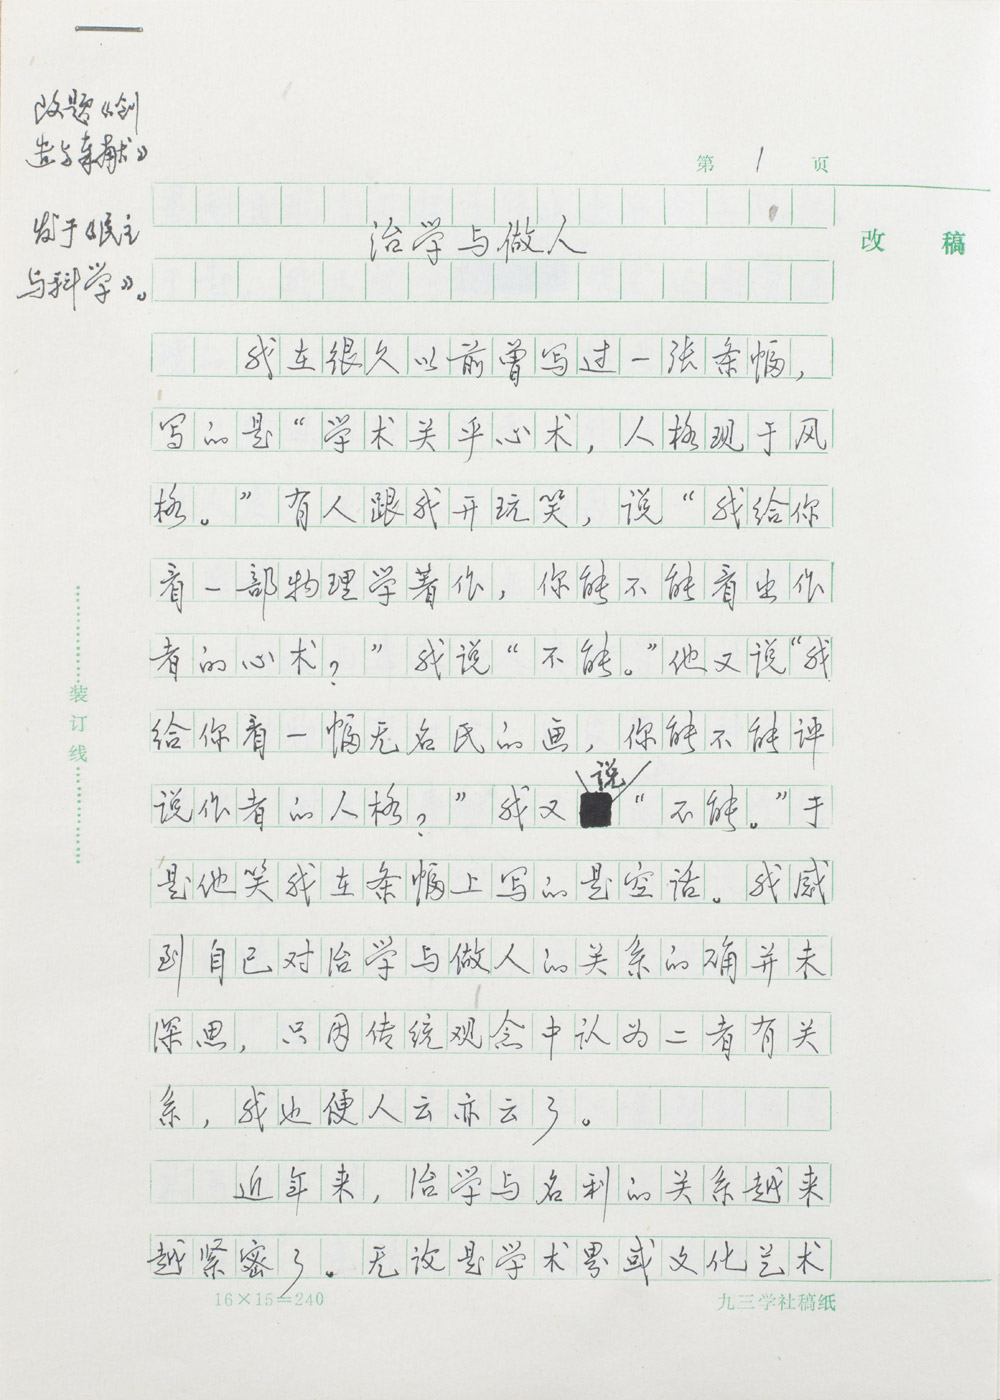 改题《创
造与奉献》
发于《民主
与科学》。
第 1 页
改 稿
治学与做人
我在很久以前曾写过一张条幅，
写的是“学术关乎心术，人格现于风
格。”有人跟我开玩笑，说“我给你
看一部物理学著作，你能不能看出作
者的心术？”我说“不能。”他又说“我
给你看一幅无名氏的画，你能不能评
说作者的人格？”我又说“不能。”于
是他笑我在条幅上写的是空话。我感
到自己对治学与做人的关系的确并未
深思，只因传统观念中认为二者有关
系，我也便人云亦云了。
近年来，治学与名利的关系越来
越紧密了。无论是学术界或文化艺术
装订线
16×15=240
九三学社稿纸